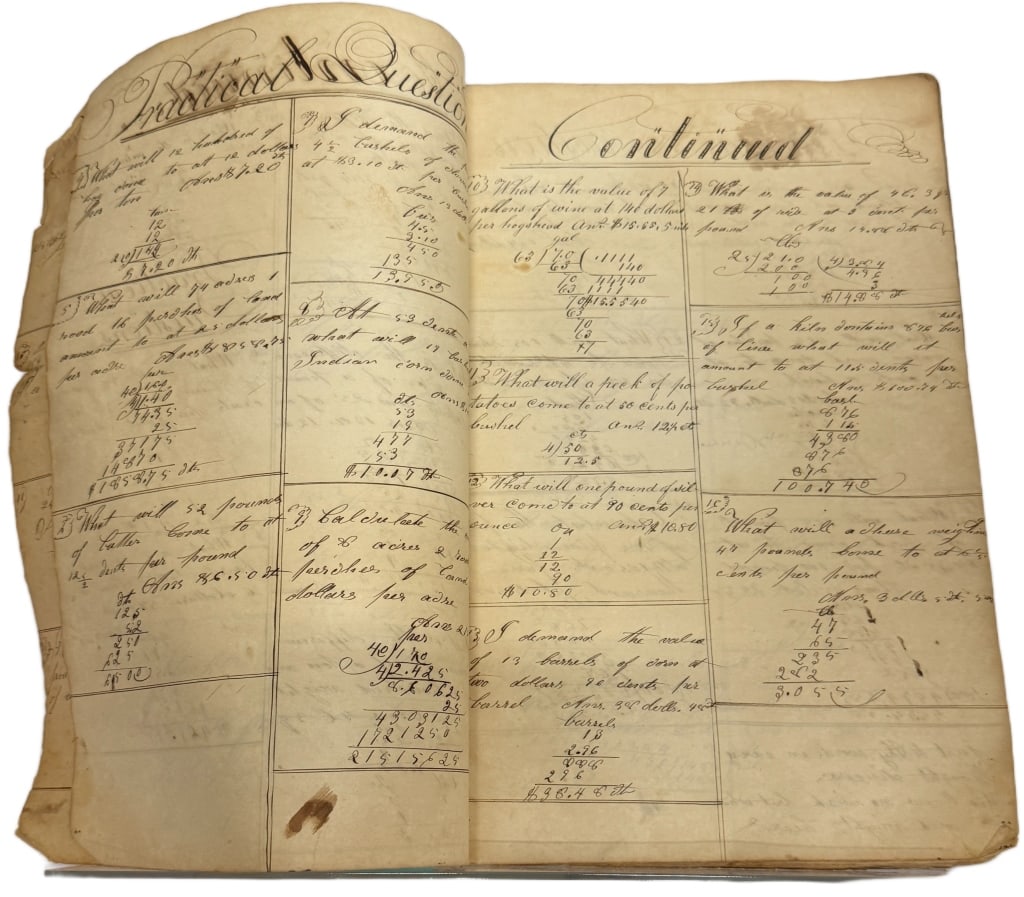 Practical Questio
What will 12 hundred of
come to at 12 dollars
per ton Ans $7.20 ct
12
12
20)144
$7.20 ct
What will 74 acres 1
rood 16 perches of land
amount to at 25 dollars
per acre Ans $1858.75
per
25
37175
14870
$1858.75 ct
What will 52 pounds
of butter come to at
12 1/2 cents per pound
Ans $6.50 ct
ct
125
52
250
625
I demand the
4 1/2 bushels of
at $3.10 ct per
bus
4.5
3.10
450
135
13.95.0
At 53 cents a
what will 19
Indian corn come
ct
53
19
477
53
$10.07 ct
Calculate the
of 8 acres 2
perches of land
dollars per acre
per
4)2.425
8.60625
25
4303125
1721250
21515625
Continued
10 What is the value of 7
gallons of wine at 140 dollars
per hogshead Ans. $15.55,5
gal
63)7.0(.1111
63 140
70 44440
63 1111
70 $15.5540
63
70
63
+7
11 What will a peck of po
tatoes come to at 50 cents per
bushel Ans 12 1/2 ct
ct
4)50
12.5
12 What will one pound of sil
ver come to at 90 cents per
ounce Ans $10.80
12
12
90
$10.80
13 I demand the value
of 13 barrels of corn at
two dollars 96 cents per
barrel Ans. 38 dolls. 48 ct
barrels
13
2.96
888
296
$38.48 ct
What is the value of 4 C. 3 qr
21 lb of rice at 3 cents per
pound Ans 14.88 ct
$14.88 ct
If a kiln contains 876 bus
of lime what will it
amount to at 11.5 cents per
bushel Ans. $100.74 ct
bush
876
115
4380
876
876
100.740
What will a cheese weighing
47 pounds come to at 6 1/2
cents per pound
Ans. 3 dolls 5 ct. 5 m
47
65
235
282
3.055